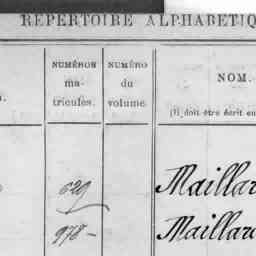 RÉPERTOIRE ALPHABÉTIQ
NUMÉROS
ma-
tricules.
NUMÉRO
du
volume.
NOM.
(Il doit être écrit en
629
Maillar
978
Maillar